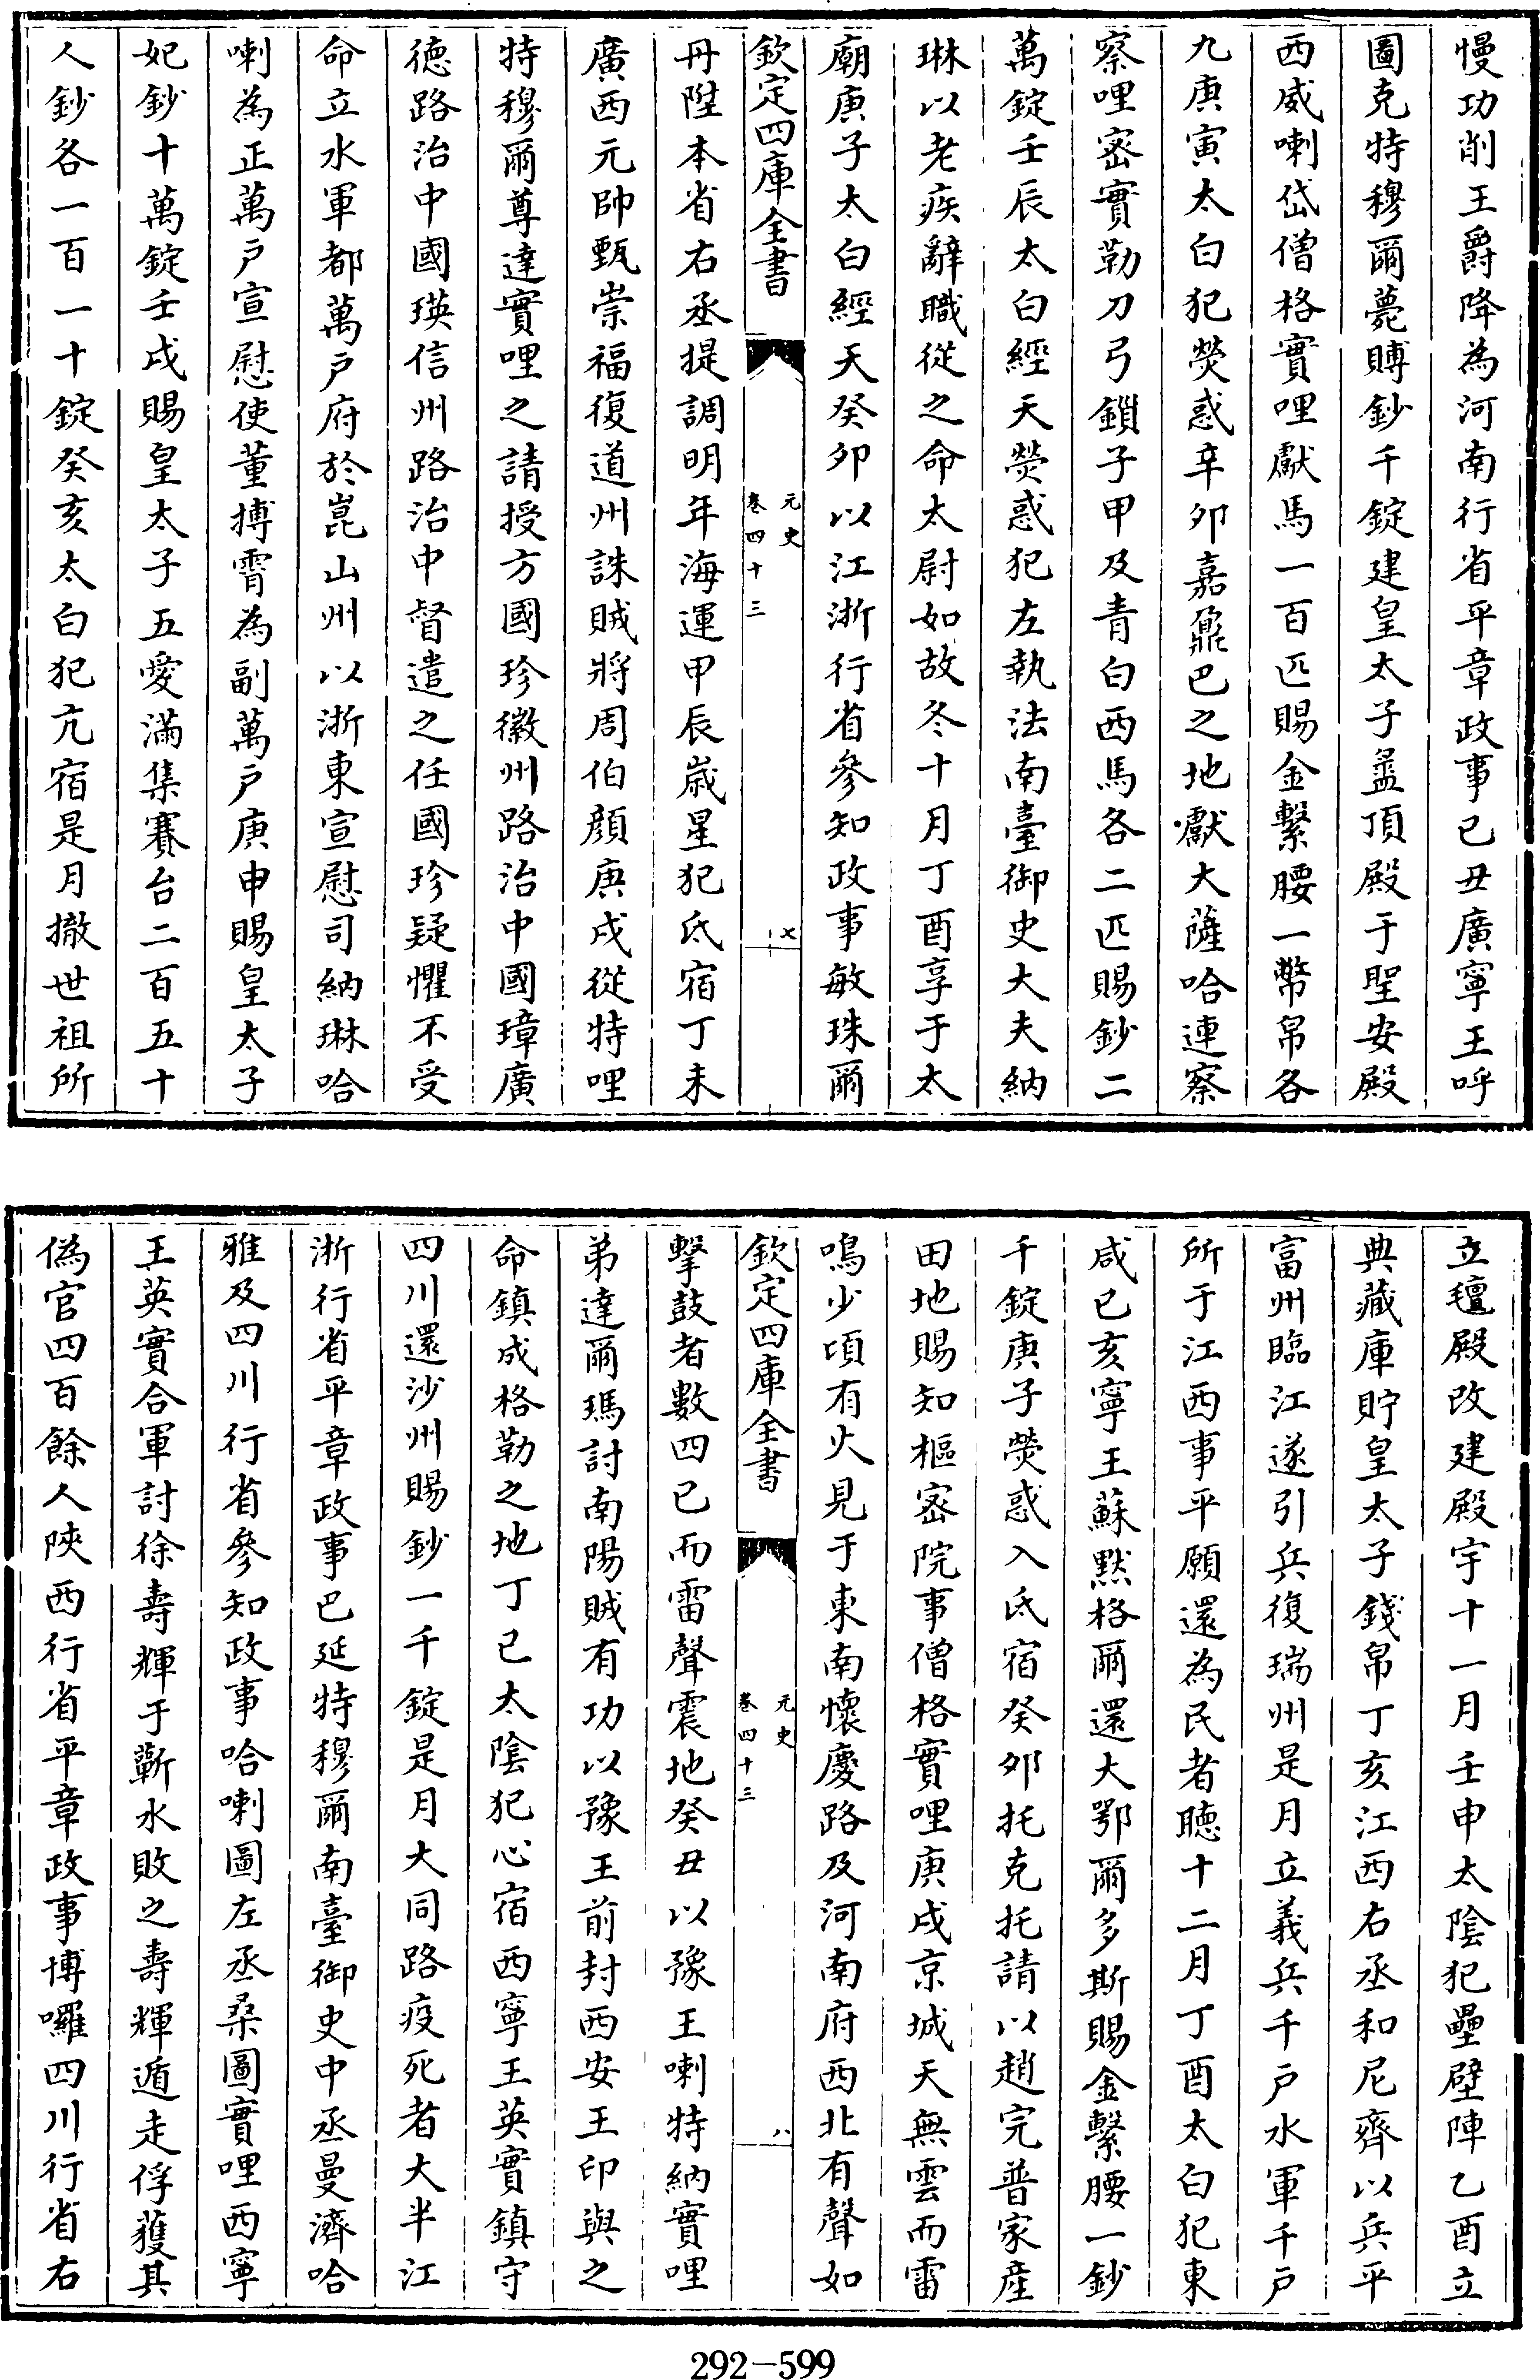 慢功削王爵降為河南行省平章政事己丑廣寧王呼
圖克特穆爾薨賻鈔千錠建皇太子盝頂殿于聖安殿
西威喇岱僧格實哩獻馬一百匹賜金繫腰一幣帛各
九庚寅太白犯熒惑辛卯嘉鼐巴之地獻大薩哈連察
察哩宻實勒刀弓鎖子甲及青白西馬各二匹賜鈔二
萬錠壬辰太白經天熒惑犯左執法南臺御史大夫納
琳以老疾辭職從之命太尉如故冬十月丁酉享于太
廟庚子太白經天癸卯以江浙行省參知政事敏珠爾
欽定四庫全書
元史
卷四十三
七
丹陞本省右丞提調明年海運甲辰嵗星犯氐宿丁未
廣西元帥甄崇福復道州誅賊將周伯顔庚戌從特哩
特穆爾尊達實哩之請授方國珍徽州路治中國璋廣
徳路治中國瑛信州路治中督遣之任國珍疑懼不受
命立水軍都萬戶府於崑山州以浙東宣慰司納琳哈
喇為正萬戶宣慰使董摶霄為副萬戶庚申賜皇太子
妃鈔十萬錠壬戌賜皇太子五愛滿集賽台二百五十
人鈔各一百一十錠癸亥太白犯亢宿是月撤世祖所
立氊殿改建殿宇十一月壬申太陰犯壘壁陣乙酉立
典藏庫貯皇太子錢帛丁亥江西右丞和尼齊以兵平
富州臨江遂引兵復瑞州是月立義兵千戶水軍千戶
所于江西事平願還為民者聽十二月丁酉太白犯東
咸己亥寧王蘇黙格爾還大鄂爾多斯賜金繫腰一鈔
千錠庚子熒惑入氐宿癸卯托克托請以趙完普家産
田地賜知樞宻院事僧格實哩庚戌京城天無雲而雷
鳴少頃有火見于東南懐慶路及河南府西北有聲如
欽定四庫全書
元史
卷四十三
八
擊鼓者數四已而雷聲震地癸丑以豫王喇特納實哩
弟達爾瑪討南陽賊有功以豫王前封西安王印與之
命鎮成格勒之地丁巳太陰犯心宿西寧王英實鎮守
四川還沙州賜鈔一千錠是月大同路疫死者大半江
浙行省平章政事巴延特穆爾南臺御史中丞曼濟哈
雅及四川行省參知政事哈喇圖左丞桑圖實哩西寧
王英實合軍討徐壽輝于蘄水敗之壽輝遁走俘獲其
偽官四百餘人陜西行省平章政事博囉四川行省右
292-599